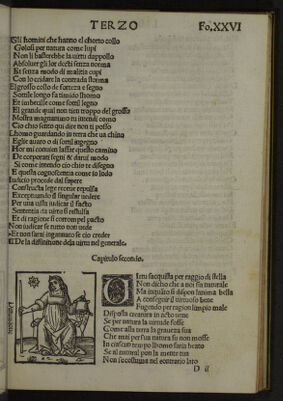 TERZO Fo. XXVI
Gli homini che hanno el chorto collo
Golosi per natura come lupi
Non li bastarebbe la uirtu dappollo
Absoluer gli lor decti senza norma
Et senza modo di malitia cupi
Con lo cridare la contrada storna
El grosso collo de forteza e segno
Sottile longo fa timido lhomo
Et imbecille come sottil legno
El grande qual non sien troppo del grosso
Mostra magnanimo tu intendi como
Cio chio sento qui dire non ti posso
Lhomo guardando in terra che ua chino
Eglie auaro o di sottil ingegno
Hor mi comuien lassar questo camino
De corporati segni & darui modo
Si come intendo cio chio te disegno
E questa cognoscenza come io lodo
Iudicio procede dal sapere
Constructa lege recete repulsa
Exceptuando il singular uedere
Per una uista iudicar il facto
Sententia da uirtu si resulsa
Et di ragione si corrompel pacto
Non iudicar se tutto non uede
Et non sarai ingannato se cio creder
De la diffinitione dela uirtu nel generale.
Capitulo secondo.
Uirtu sacquista per raggio di stella
Non dicho che a noi sia naturale
Ma inquato si dispon lanima bella
A conseguir il uirtuoso bene
Fugendo per ragion limpio male
Disposta creatura in acto uene
Se per natura la uirtude fosse
Come alla terra la graueza sua
Che mai per sua natura su non mosse
In ciascun tempo lhomo saria beato
Se al natural pon la mente tua
Non saccostuma nel contrario lato
D ii